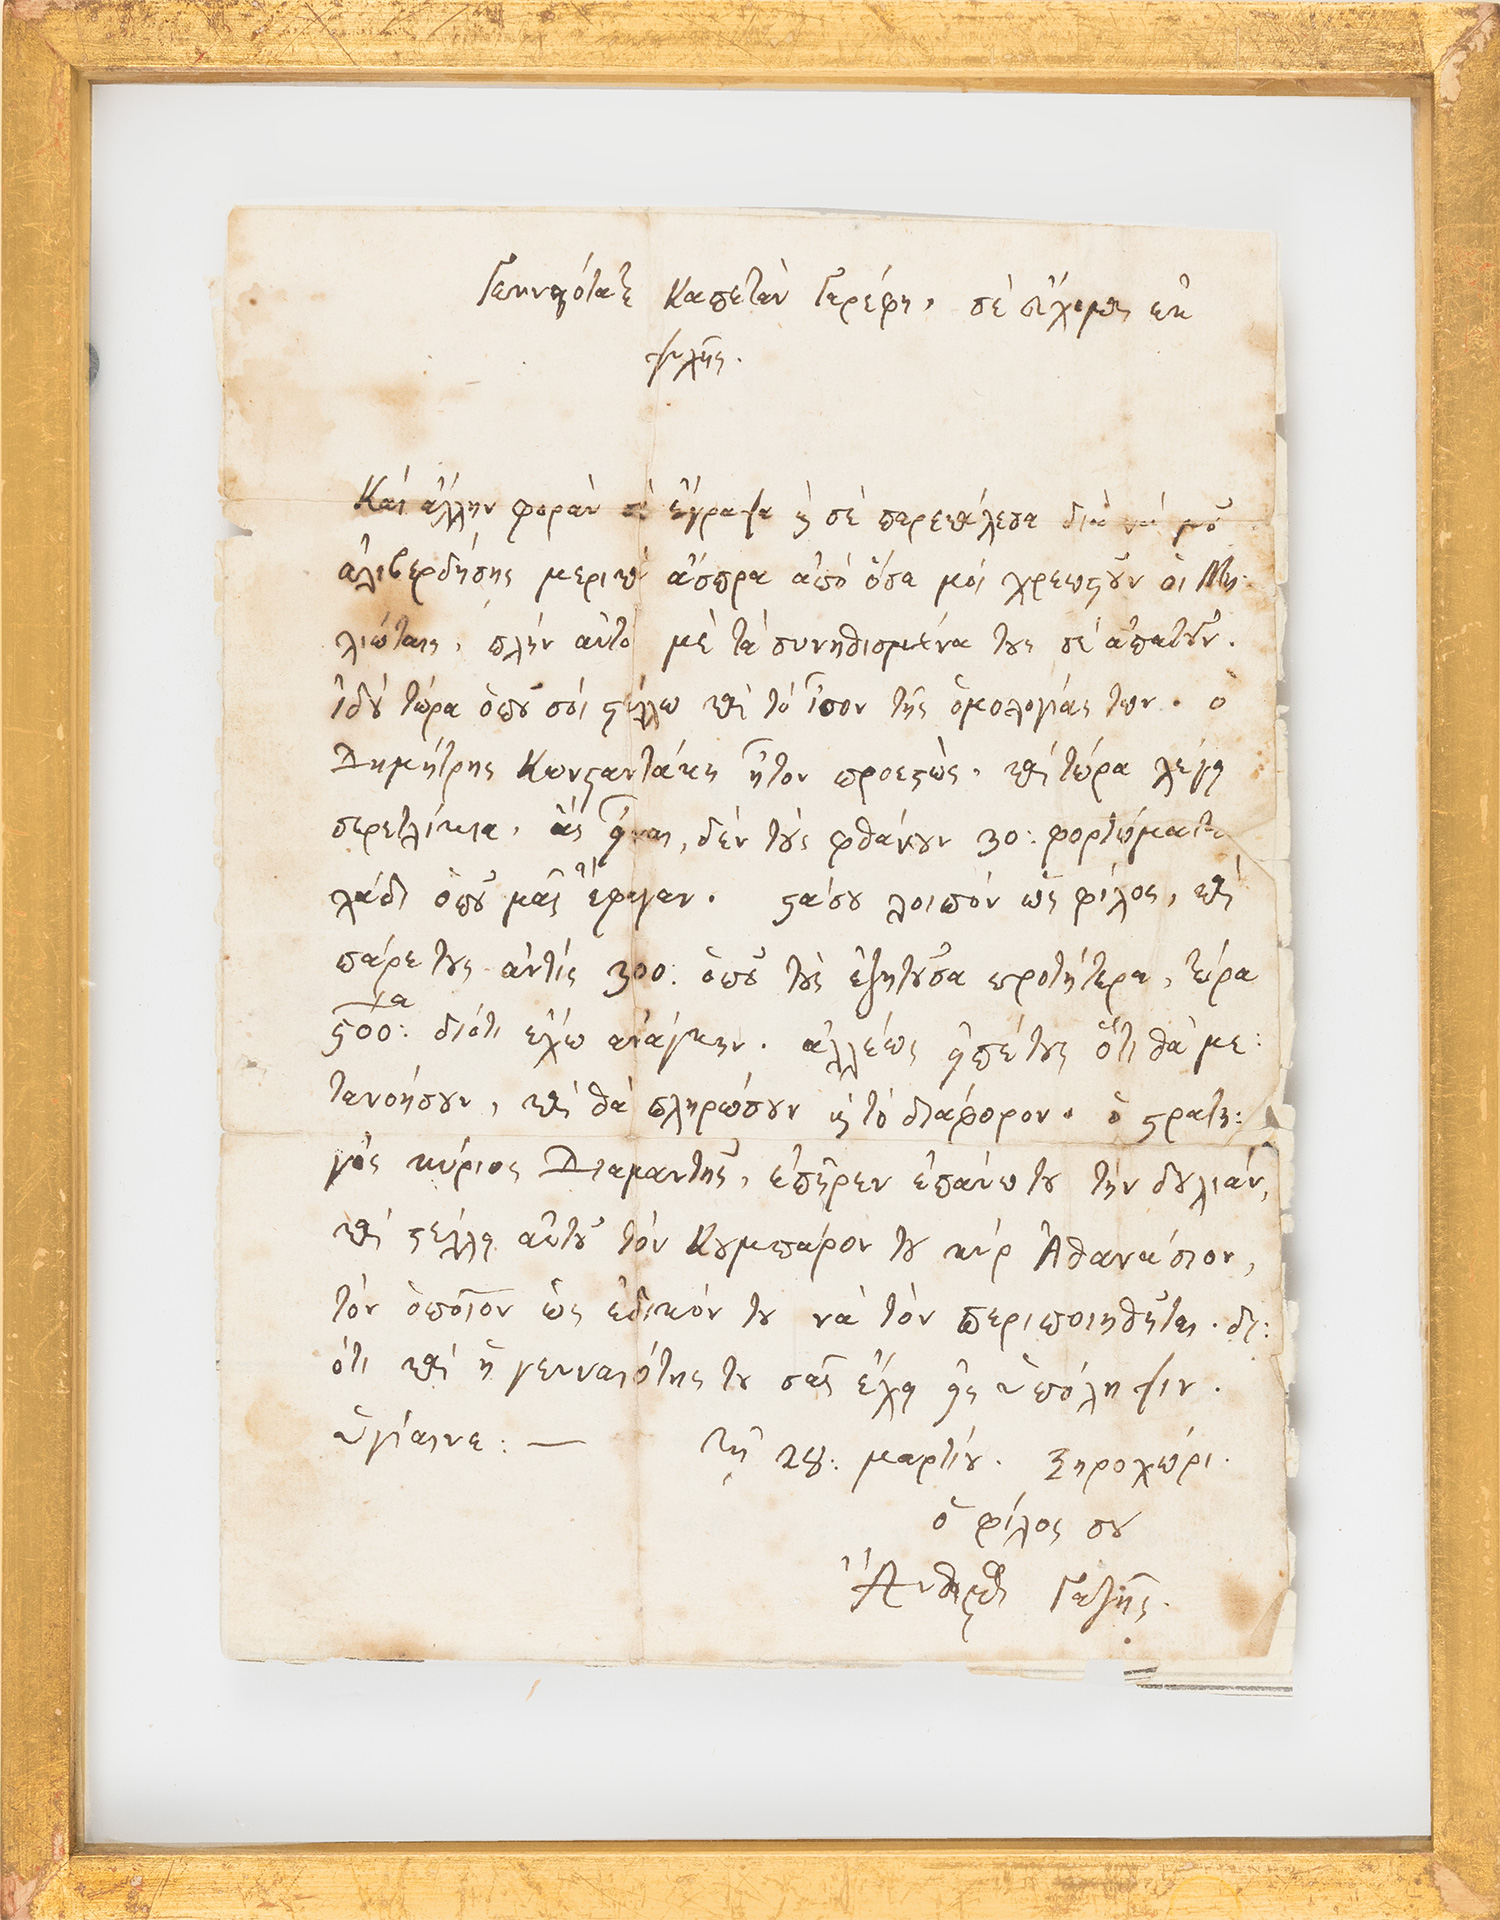 Γενναιότατε Καπετὰν Γαρέφη, σὲ εὔχομαι ἐκ
ψυχῆς.
Καὶ ἄλλην φορὰν σὲ ἔγραψα ϗ σὲ παρεκάλεσα διὰ νὰ μοῦ
ἀλιβερδήσῃς μερικὰ ἄσπρα ἀπὸ ὅσα μοὶ χρεωστοῦν οἱ Μη:
λιώταις, πλὴν αὐτοὶ μὲ τὰ συνηθισμένα τους σὲ ἀπατοῦν.
ἰδοὺ τώρα ὁποῦ σοὶ στέλλω καὶ τὸ ἴσον τῆς ὁμολογίας των. ὁ
Δημήτρης Κωνσταντάκη ἦτον προεστὼς, καὶ τώρα λέγει
σερετλίκια. ἂς εἶναι, δὲν τοὺς φθάνουν 30: φορτώματα
λάδι ὁποῦ μᾶς ἔφαγαν. στάσου λοιπὸν ὡς φίλος, καὶ
πάρε τους ἀντὶς 300: ὁποῦ τοὺς ἐζητοῦσα προτήτερα, τώρα
500: διότι ἔχω ἀνάγκην. ἀλλέως εἰπέ τους ὅτι θὰ με:
τανοήσουν, καὶ θὰ πληρώσουν ϗ τὸ διάφορον. ὁ στρατη:
γὸς κύριος Διαμαντῆς, ἐπῆρεν ἐπάνω του τὴν δουλιάν,
καὶ στέλλει αὐτοῦ τὸν Κουμπάρον του κὺρ Ἀθανάσιον,
τὸν ὁποῖον ὡς ἐδικόν του νὰ τὸν περιποιηθῆται. δι:
ότι καὶ ἡ γενναιότης του σᾶς ἔχει εἰς ὑπόληψιν.
ὑγίαινε: — τῇ 28: μαρτίου. Ξηροχώρι.
ὁ φίλος σου
Ἄνθιμος Γαζῆς.